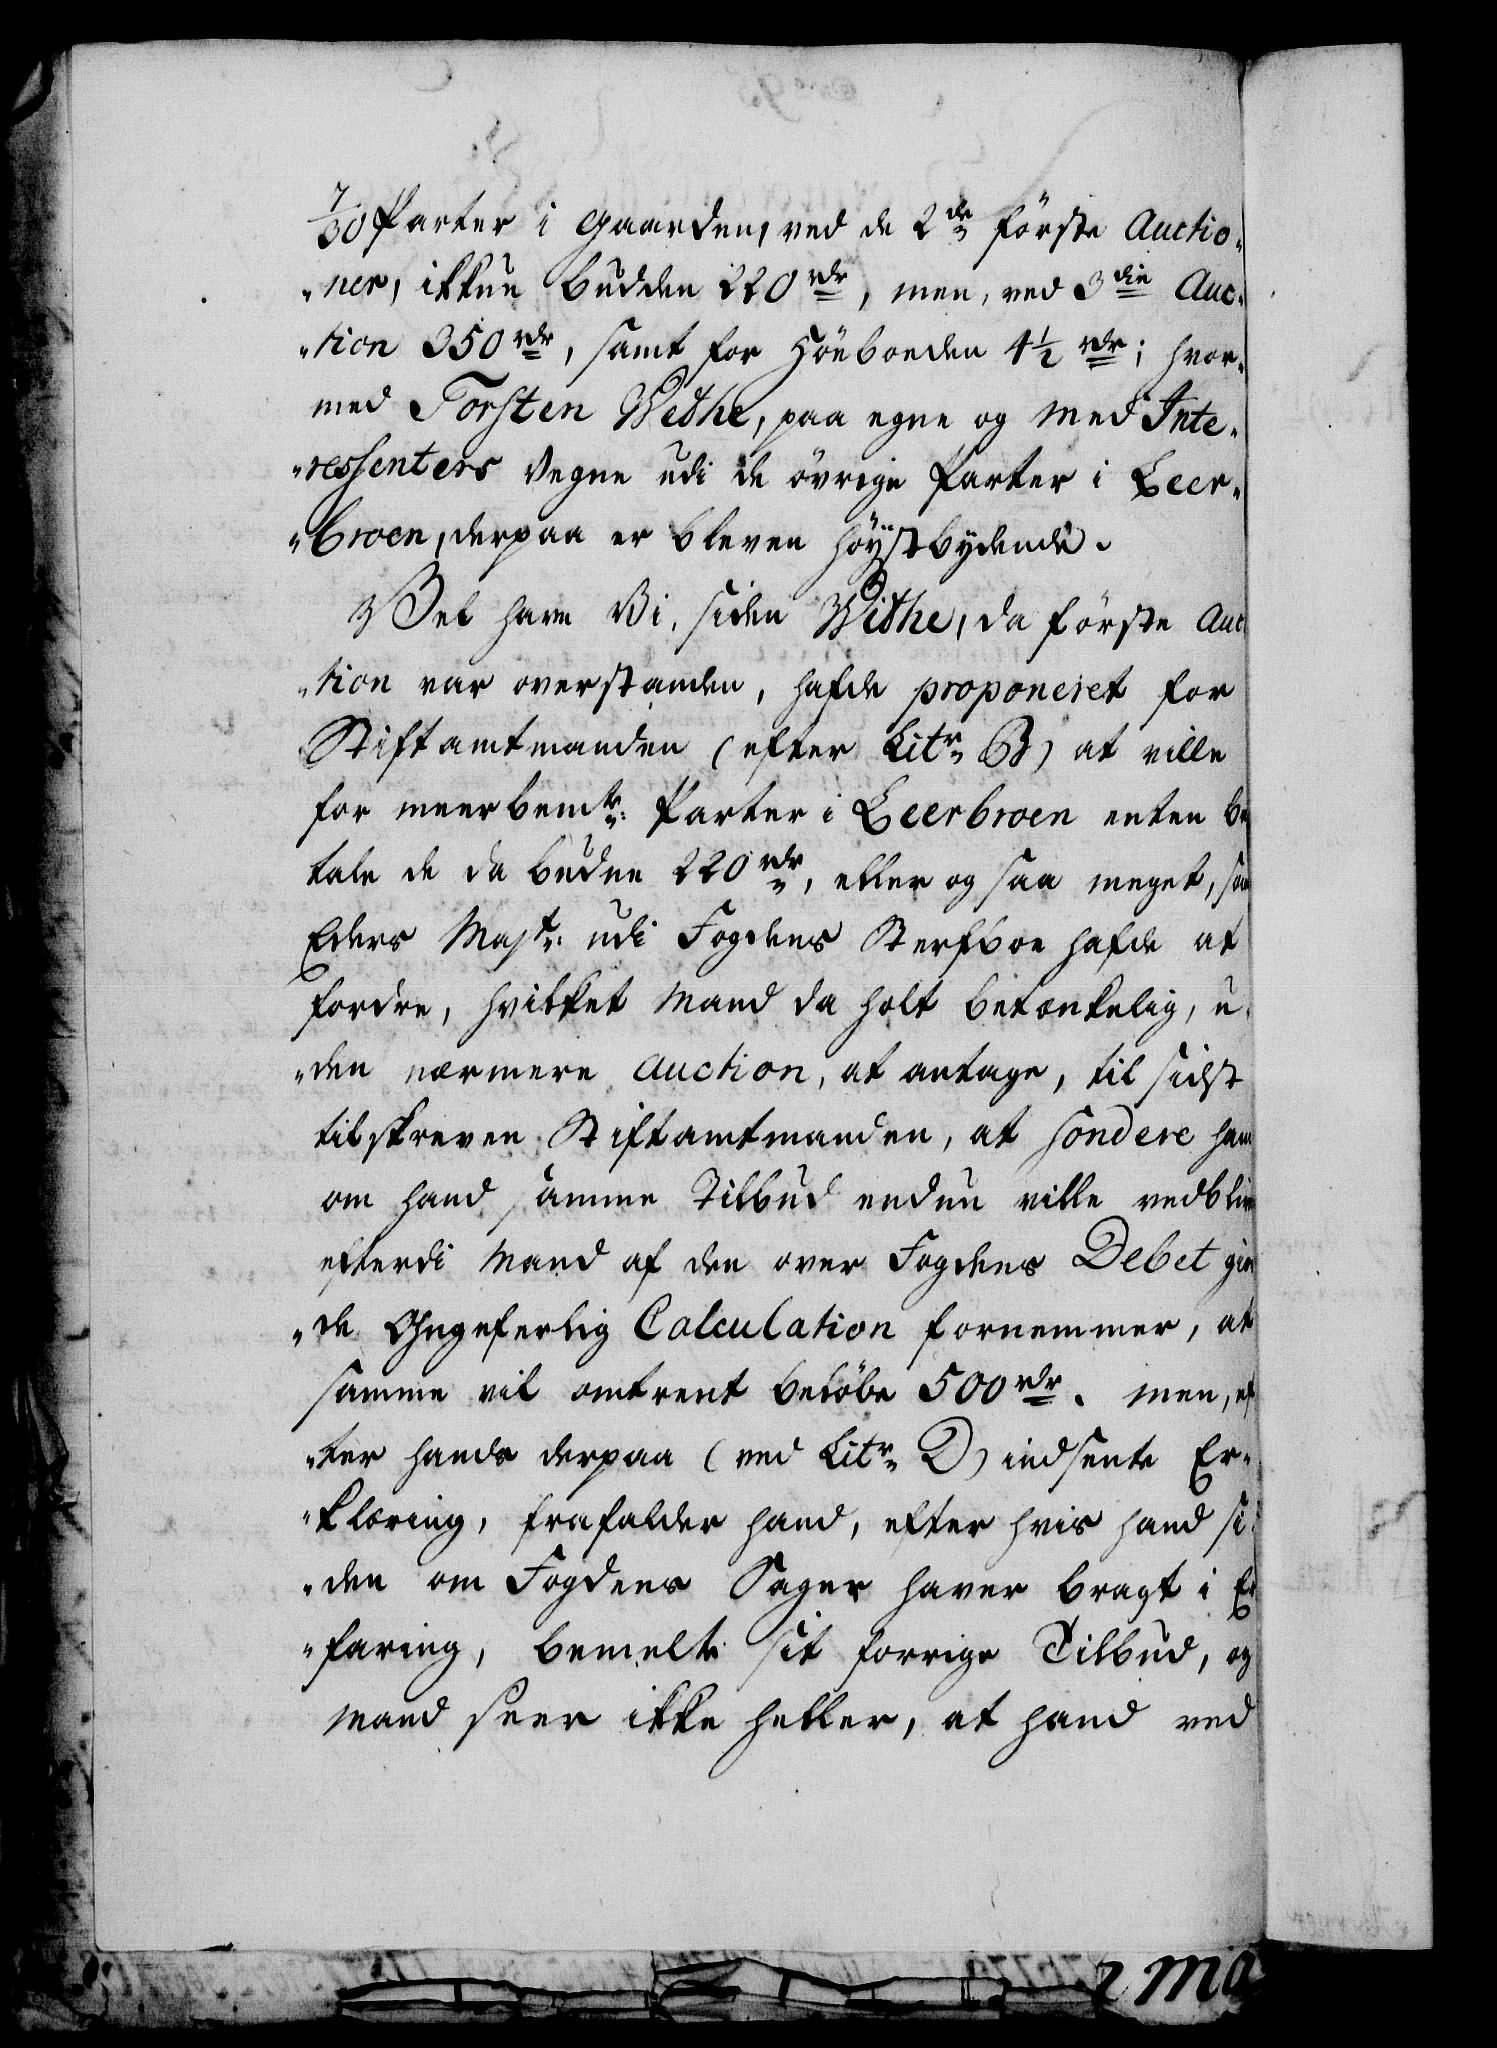 7/30 Parter i Gaarden, ved de 2de første Auctio-
-ner, ikkun budden 220 rdr, men, ved 3die Auc-
-tion 350 rdr, samt for Höeboeden 4½ rdr; hvor-
med Torsten Wethe, paa egne og Med Inte-
-ressenters Vegne udi de övrige Parter i Leer-
-broen, derpaa er bleven höÿstbÿdende.
Vel have Vi, siden Withe, da förste Auc
-tion var overstanden, hafde proponeret for
Stiftamtmanden (efter Litr. B) at ville
for meerbemte: Parter i Leerbroen enten be
tale de da budne 220 rdr, eller og saa meget, som
Eders Majt: udi Fogdens Sterfboe hafde at
fordre, hvilket Mand da holt betænkelig, u-
-den nærmere Auction, at antage, til sidst
tilskreven Stiftamtmanden, at sondere ham
om hand samme Tilbud endnu ville vedblive
efterdi Mand af den over Fogdens Debet gior
-de Ohngeferlig Calculation fornemmer, at
samme vil omtrent belöbe 500 rdr. men, ef
-ter hands derpaa (ved Litr. D) indsente Er-
-klæring, frafalder hand, efter hvis hand si-
-den om Fogdens Sager haver bragt i Er
-faring, bemelte sit forrige Tilbud, og
Mand seer ikke heller, at hand ved